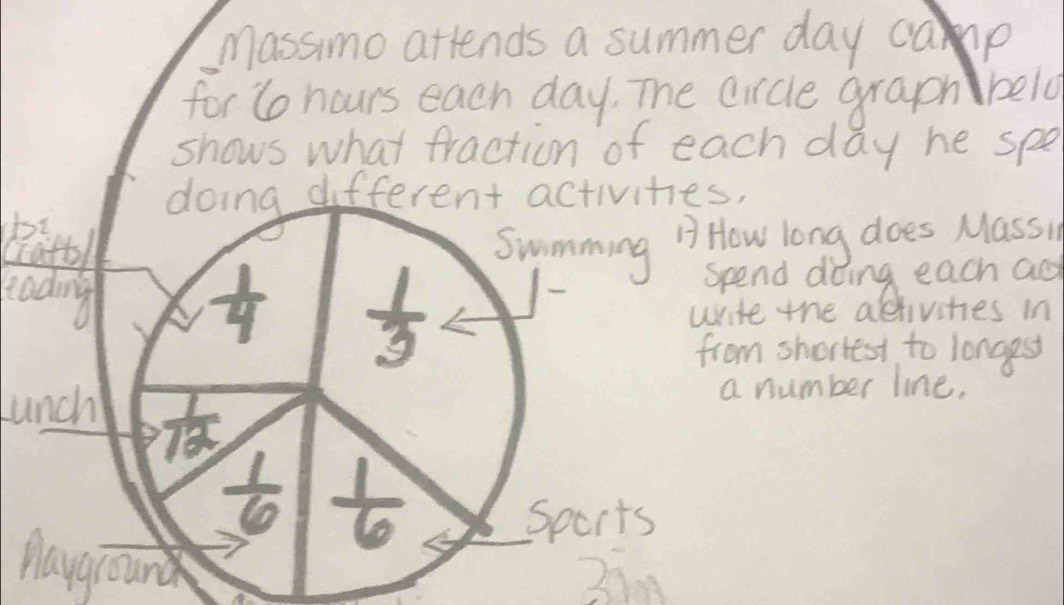 Massimo attends a summer day camp
for 6 hours each day. The circle graph belo
shows what fraction of each day he spe
doing different activities.
Swimming
1) How long does Massi
spend doing each act
write the activities in
from shortest to longest
a number line.
crafts/
eading
1/4
1/3
unch
1/12
1/6
1/6
Sports
Playground